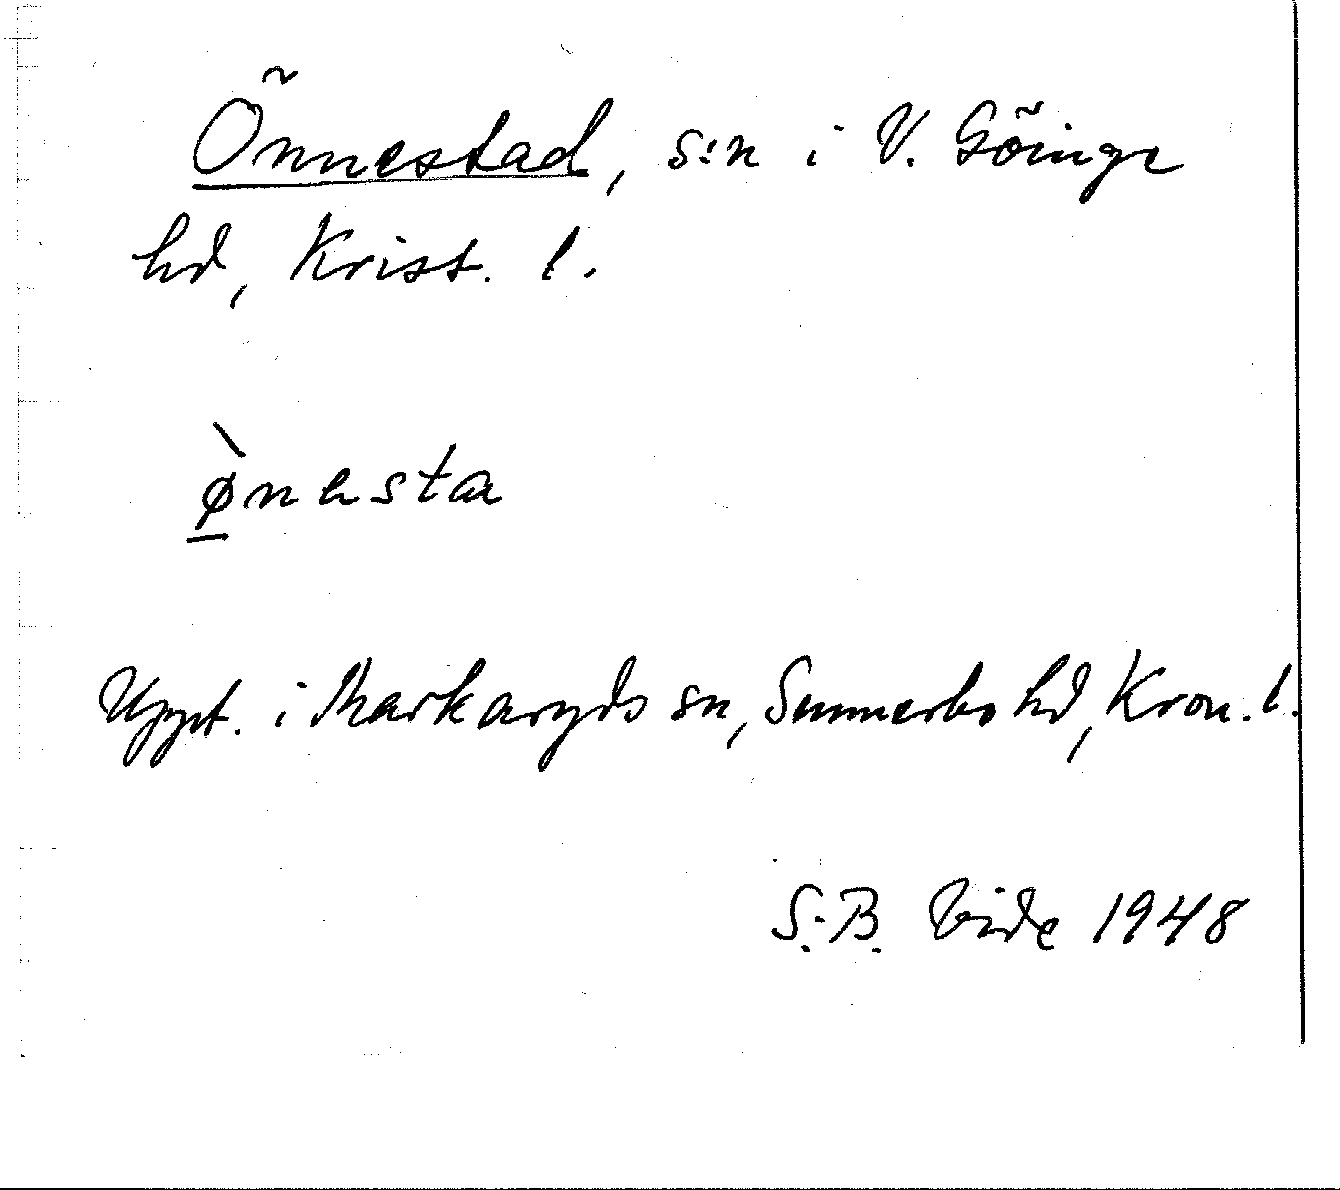 Önnestad, s:n i V. Göinge
hd, Krist. l.
ø̀nesta
Uppt. i Markaryds sn, Sunnerbo hd, Kron. l.
S. B. Vide 1948